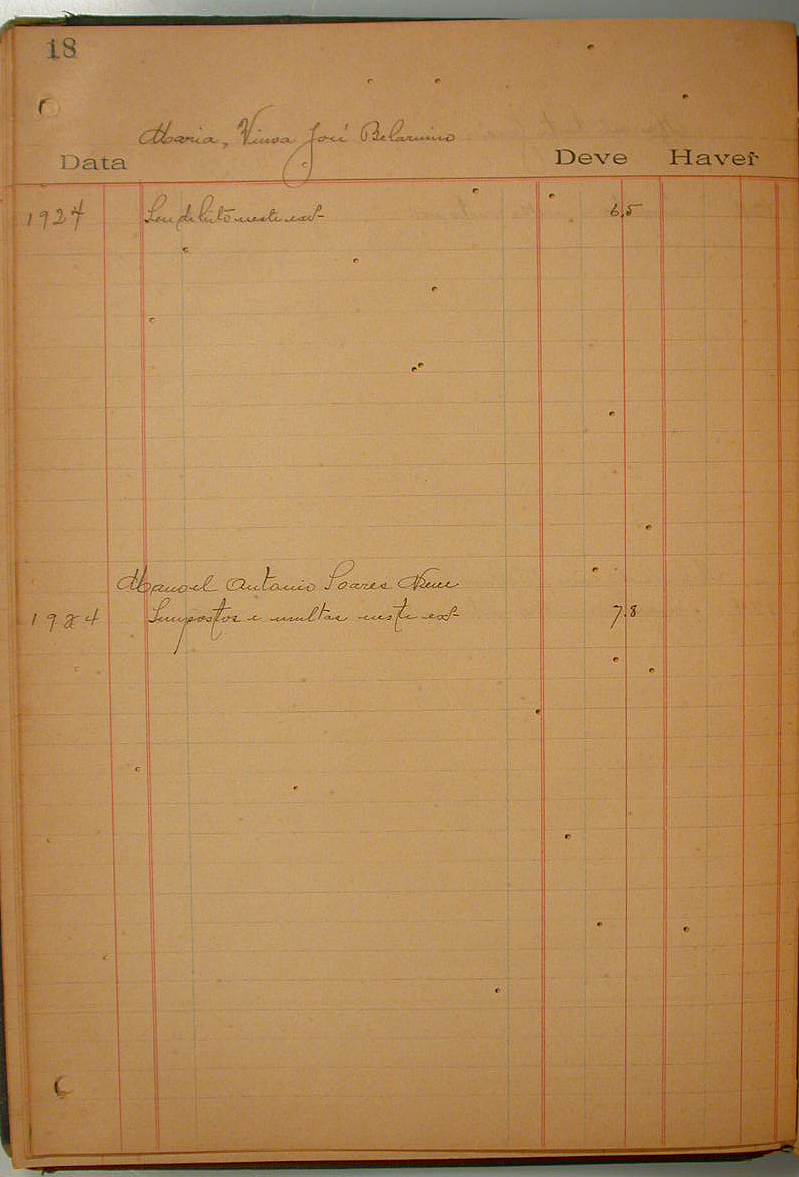 18
Maria, Viuva José Belarmino
Data Deve Haver
1924 Seu debito neste exº 6,5
Manoel Antonio Soares
1924 Impostos e multas neste exº 7.8